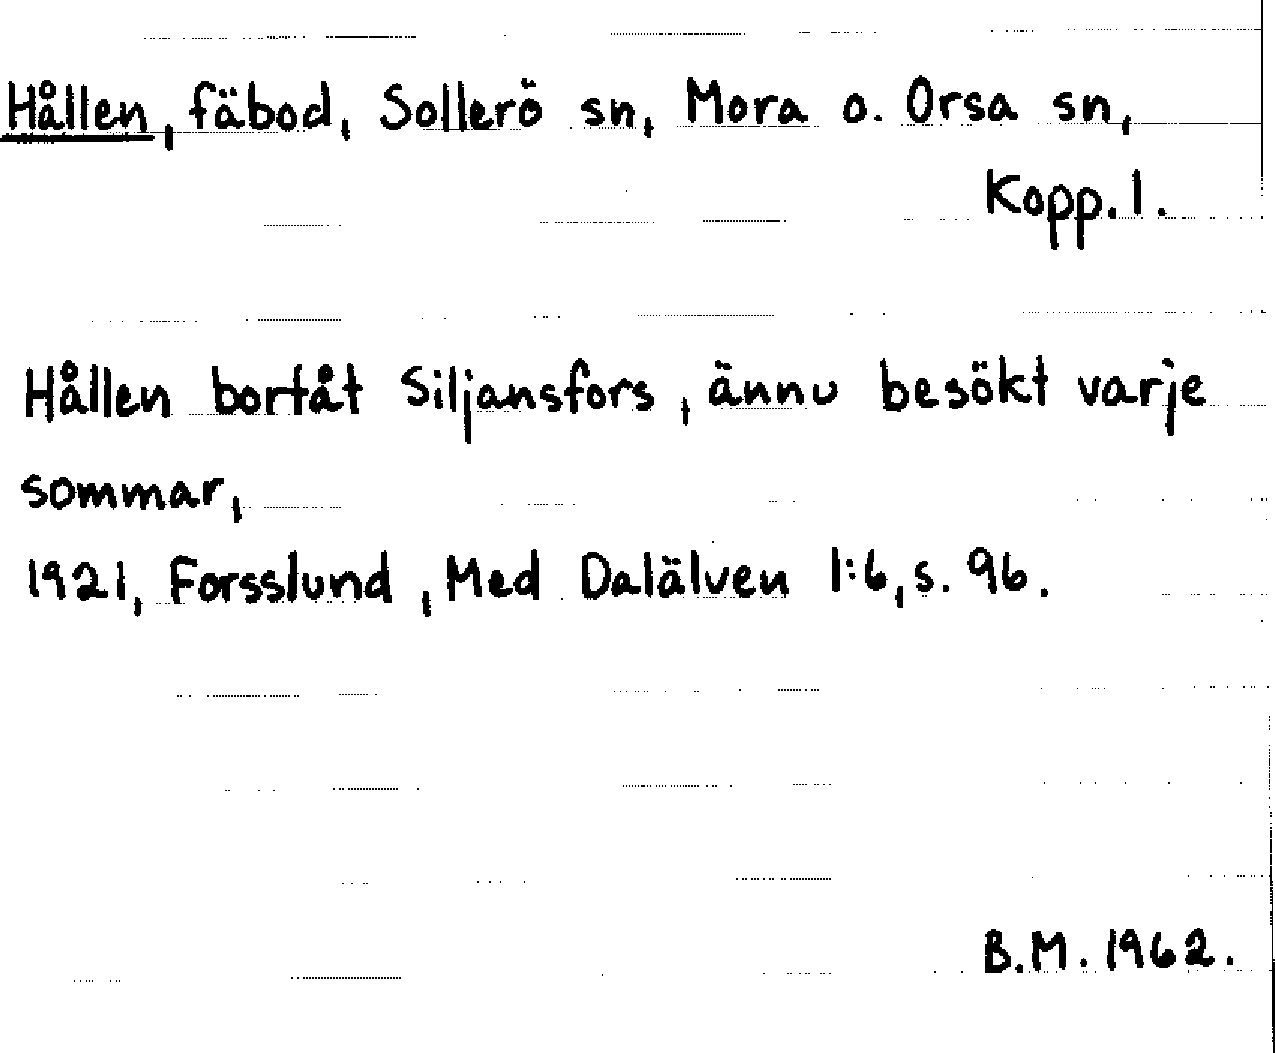 Hållen, fäbod, Sollerö sn, Mora o. Orsa sn,
Kopp.l.
Hållen bortåt Siljansfors, ännu besökt varje
sommar,
1921, Forsslund, Med Dalälven 1:6, s. 96.
B.M. 1962.